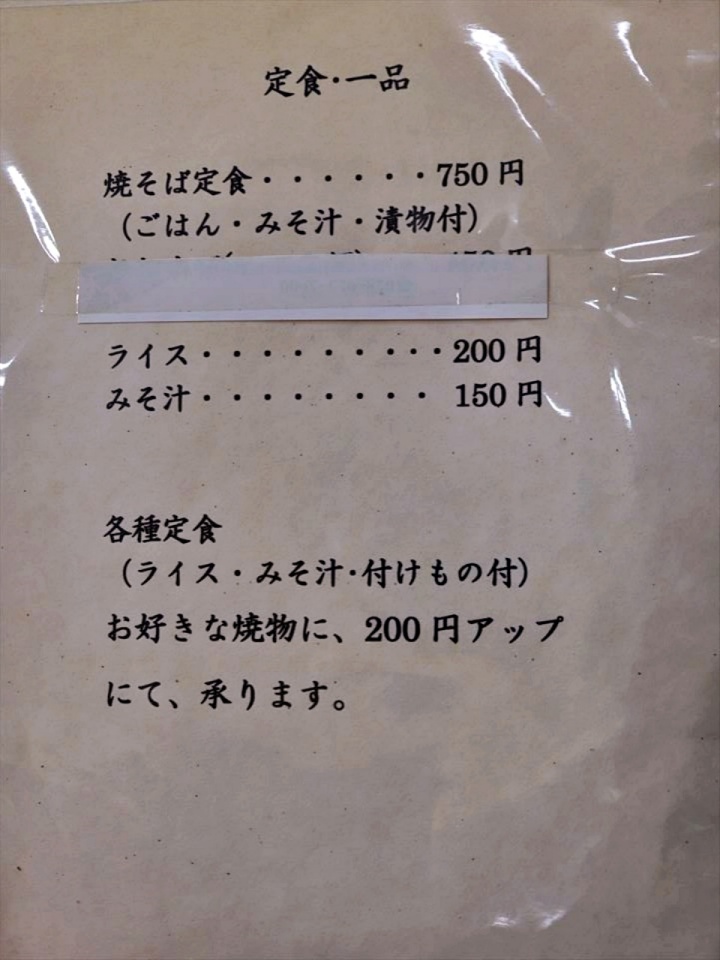 定食・一品
焼そば定食・・・・・・750円
（ごはん・みそ汁・漬物付）
ライス・・・・・・・・・200円
みそ汁・・・・・・・・ 150円
各種定食
（ライス・みそ汁・付けもの付）
お好きな焼物に、200円アップ
にて、承ります。